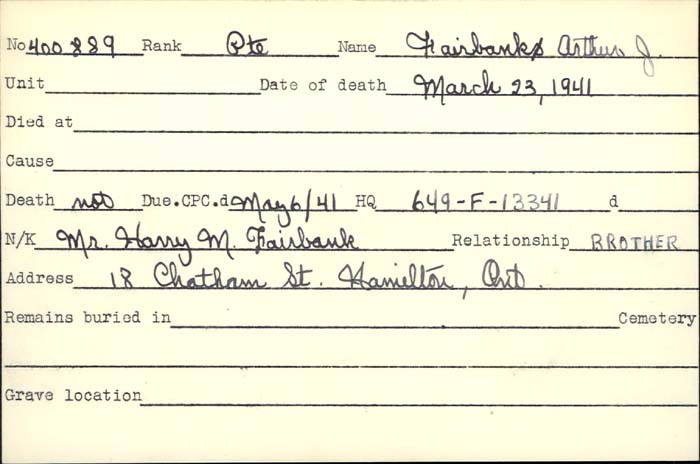 No 400889 Rank Pte Name Fairbank Arthur J.
Unit Date of death March 23, 1941
Died at
Cause
Death not Due.CPC.d May 6/41 HQ 649-F-13341 d
N/K Mr. Harry M. Fairbank Relationship BROTHER
Address 18 Chatham St. Hamilton, Ont.
Remains buried in Cemetery
Grave location